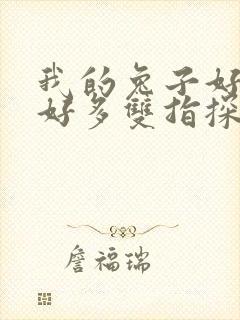 我的兔子好
好多雙指探
詹福瑞